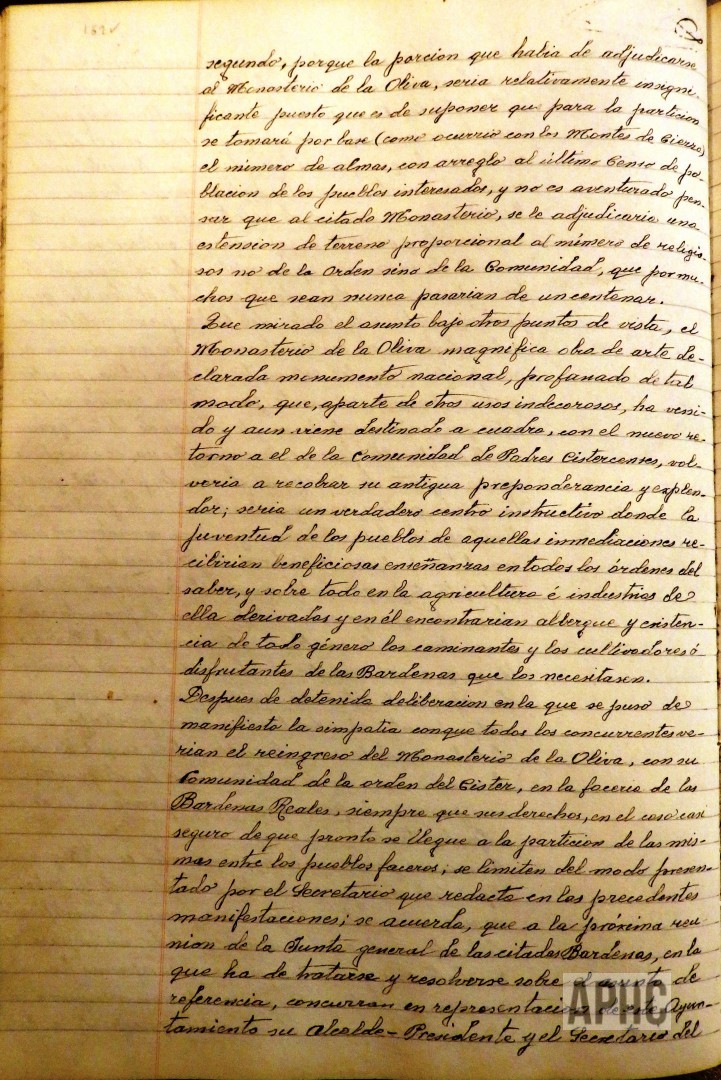 segundo, porque la porcion que habia de adjudicarse
al Monasterio de la Oliva, seria relativamente insigni
ficante puesto que es de suponer que para la particion
se tomará por base (como ocurrio con los Montes de Cierzo)
el número de almas, con arreglo al último Censo de po-
blacion de los pueblos interesados, y no es aventurado pen-
sar que al citado Monasterio, se le adjudicaria una
estension de terreno proporcional al número de religio-
sos no de la Orden sino de la Comunidad, que por mu-
chos que sean nunca pasarian de un centenar.
Que mirado el asunto bajo otros puntos de vista, el
Monasterio de la Oliva magnifica obra de arte de-
clarada monumento nacional, profanado de tal
modo, que, aparte de otros usos indecorosos, ha veni-
do y aun viene destinado a cuadra, con el nuevo re-
torno a el de la Comunidad de Padres Cistercenses, vol-
veria a recobrar su antigua preponderancia y explen-
dor; seria un verdadero centro instructivo donde la
juventud de los pueblos de aquellas inmediaciones re-
cibirian beneficiosas enseñanzas en todos los órdenes del
saber, y sobre todo en la agricultura é industrias de
ella derivadas y en él encontrarian albergue y existen-
cia de todo género los caminantes y los cultivadores ó
disfrutantes de las Bardenas que los necesitasen.
Despues de detenida deliberacion en la que se puso de
manifiesto la simpatia conque todos los concurrentes ve-
rian el reingreso del Monasterio de la Oliva, con su
Comunidad de la orden del Cister, en la faceria de las
Bardenas Reales, siempre que sus derechos, en el caso casi
seguro de que pronto se llegue a la particion de las mis-
mas entre los pueblos faceros; se limiten del modo presen-
tado por el Secretario que redacta en las precedentes
manifestaciones; se acuerda, que a la próxima reu
nion de la Junta general de las citadas Bardenas, en la
que ha de tratarse y resolverse sobre el asunto de
referencia, concurran en representacion de este Ayun-
tamiento su Alcalde-Presidente y el Secretario del
APHC